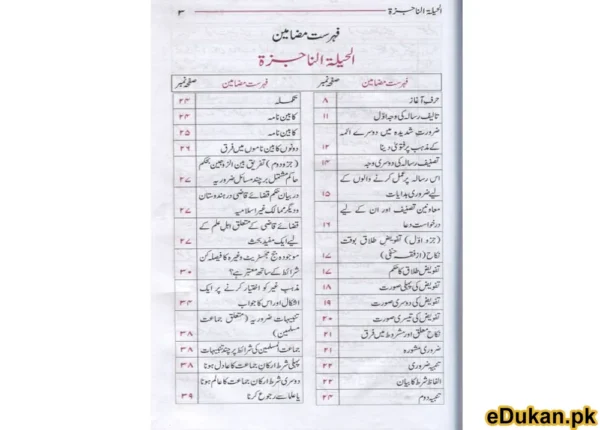 الحیلۃ الناجزۃ
۳
فہرست مضامین
الحیلۃ الناجزۃ
فہرست مضامین
صفحہ نمبر
حرفِ آغاز
۸
تالیف رسالہ کی وجہ اوّل
۱۱
ضرورت شدیدہ میں دوسرے ائمہ
کے مذہب پر فتویٰ دینا
۱۲
تصنیف رسالہ کی دوسری وجہ
۱۴
اس رسالہ پر عمل کرنے والوں کے
لیے ضروری ہدایات
۱۵
معاونین تصنیف اور ان کے لیے
درخواست دعا
۱۶
(جزو اوّل) تفویض طلاق بوقت
نکاح (از فقہ حنفی)
۱۷
تفویض طلاق کا حکم
۱۷
تفویض کی پہلی صورت
۱۸
تفویض کی دوسری صورت
۱۹
تفویض کی تیسری صورت
۲۰
نکاح معلق اور مشروط میں فرق
۲۱
ضروری مشورہ
۲۱
تنبیہ ضروری
۲۲
الفاظ شرط کا بیان
۲۲
تنبیہ دوم
۲۴
فہرست مضامین
صفحہ نمبر
تکملہ
۲۴
کابین نامہ
۲۴
کابین نامہ
۲۵
دونوں کابین ناموں میں فرق
۲۶
(جزو دوم) تفریق بین الزوجین بحکم
حاکم مشتمل بر چند مسائل ضروریہ
۲۷
در بیان حکم قضائے قاضی در ہندوستان
و دیگر ممالک غیر اسلامیہ
قضائے قاضی کے متعلق اہل علم کے
لیے ایک مفید بحث
۲۷
موجودہ جج مجسٹریٹ وغیرہ کا فیصلہ کن
شرائط کے ساتھ معتبر ہے؟
۳۰
مذہب غیر کو اختیار کرنے پر ایک
اشکال اور اس کا جواب
۳۴
تنبیہات ضروریہ (متعلق جماعت
مسلمین)
۳۸
جماعت المسلمین کی شرائط پر چند تنبیہات
پہلی شرط ارکان جماعت کا عادل ہونا
۳۸
دوسری شرط ارکان جماعت کا عالم ہونا
یا علما سے رجوع کرنا
۳۹
eDukan.pk